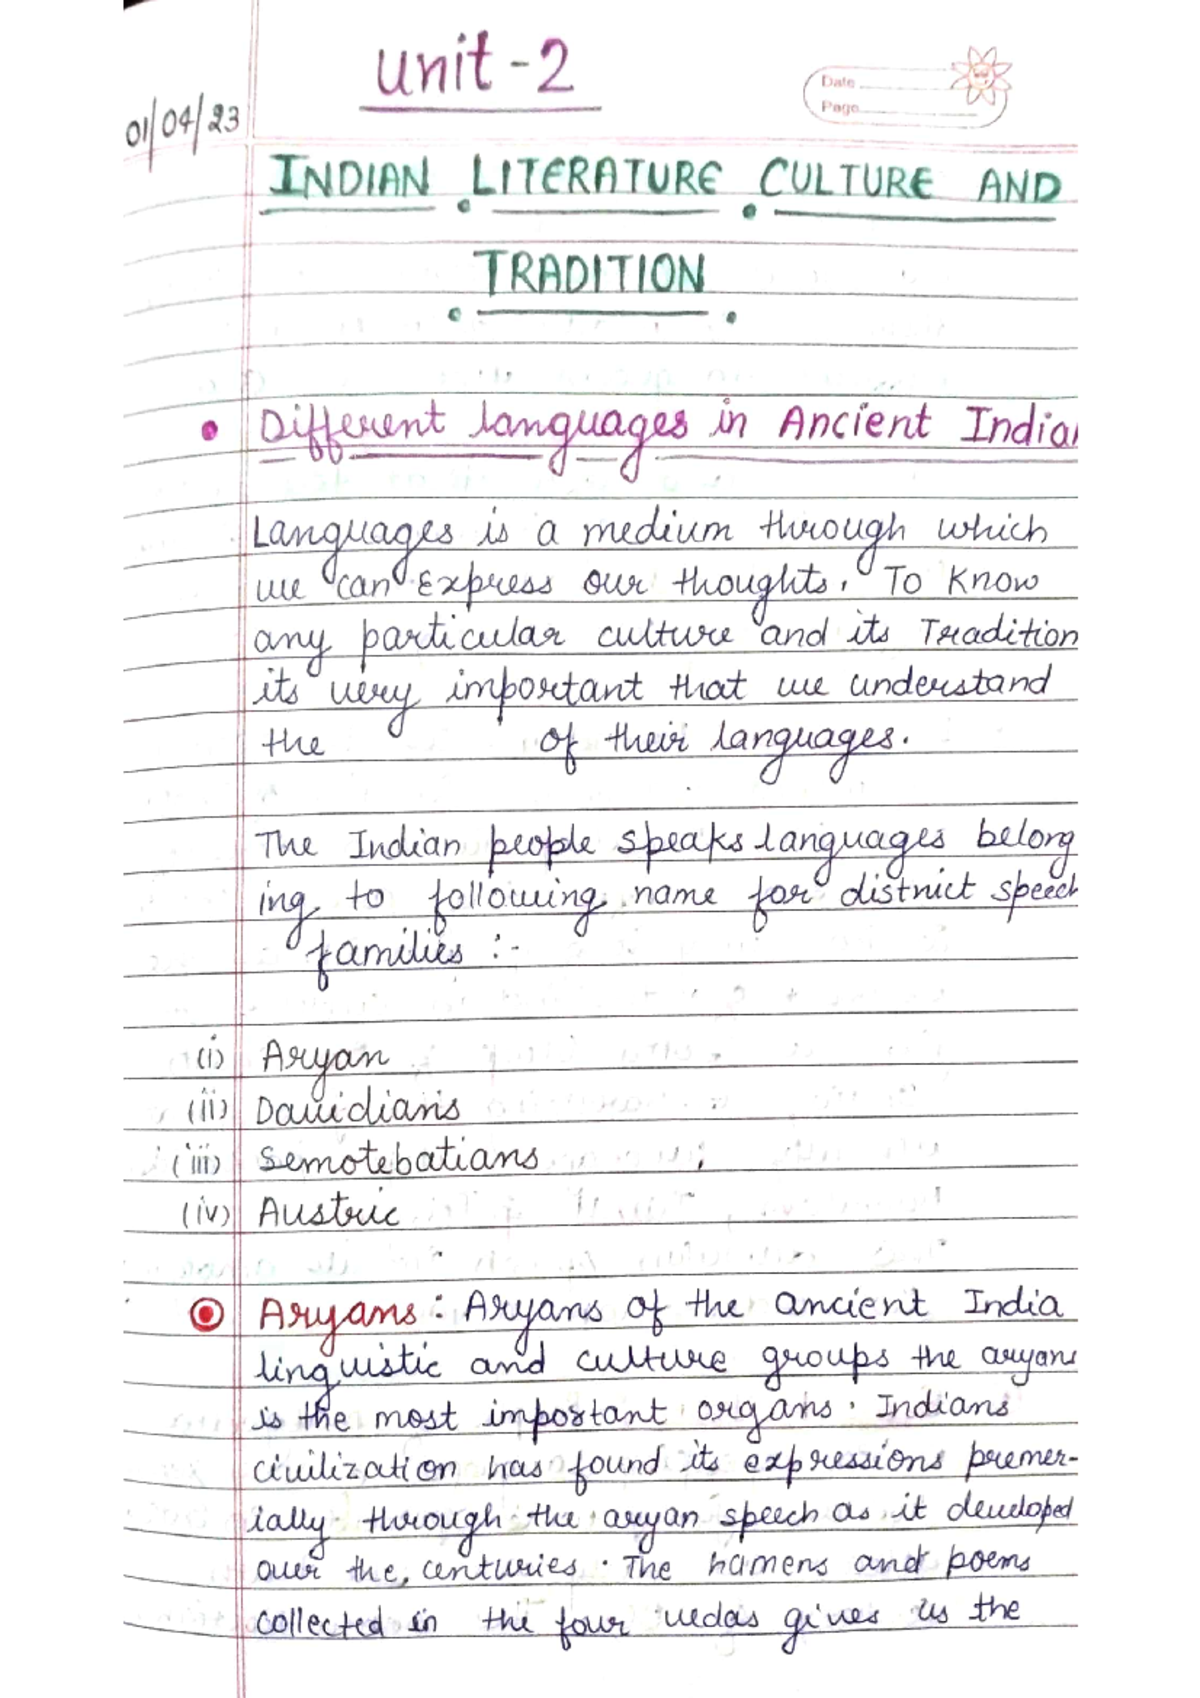 Unit-2
Date
Page
01/04/23
INDIAN LITERATURE CULTURE AND
TRADITION
Different languages in Ancient India
Languages is a medium through which
we can Express our thoughts. To Know
any particular culture and its Tradition
its very important that we understand
the of their languages.
The Indian people speaks languages belong
ing to following name for district speech
families :-
(i) Aryan
(ii) Davidians
(iii) Semotebatians
(iv) Austric
Aryans: Aryans of the ancient India
linguistic and culture groups the aryans
is the most important organs. Indians
civilization has found its expressions premer-
ially through the aryan speech as it developed
over the, centuries. The hamens and poems
collected in the four vedas gives us the